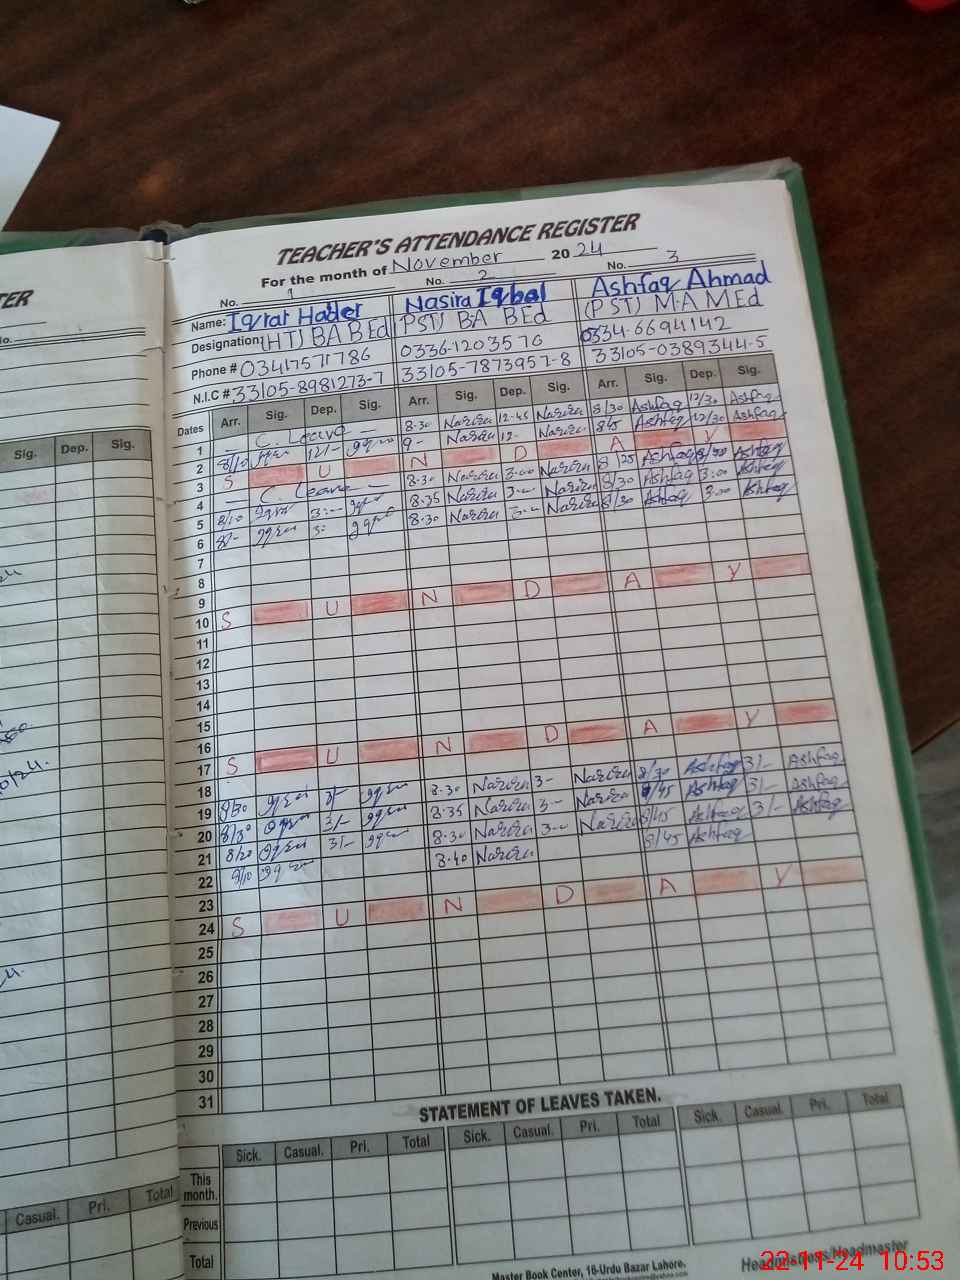 TEACHER'S ATTENDANCE REGISTER
For the month of November 2024
No. 1 No. 2 No. 3
Name: Iqrar Haider Nasira Iqbal Ashfaq Ahmad
Designation: (HT) BA B Ed (PST) BA BEd (PST) M.A M Ed
Phone # 03417571786 0336-1203576 0334-6694142
N.I.C # 33105-8981273-7 33105-7873957-8 33105-0389344-5
Dates Arr. Sig. Dep. Sig. Arr. Sig. Dep. Sig. Arr. Sig. Dep. Sig.
1 C. Leave 8.30 Nasira 12-45 Nasira 8/30 Ashfaq 12/30 Ashfaq
2 8/10 12/- 9- Nasira 12- Nasira 8/45 Ashfaq 12/30 Ashfaq
3 S U N D A Y
4 C. Leave 8.30 Nasira 3.00 Nasira 8/25 Ashfaq Ashfaq
5 8/10 8.35 Nasira Nasira 8/30 Ashfaq 3.00 Ashfaq
6 8.30 Nasira Nasira 8/30 Ashfaq 3.00 Ashfaq
7
8
9
10 S U N D A Y
11
12
13
14
15
16
17 S U N D A Y
18
19 8/30 8.30 Nasira 3- Nasira 8/30 Ashfaq 3/- Ashfaq
20 8/30 3/- 8.35 Nasira 3- Nasira 8/45 Ashfaq 3/- Ashfaq
21 8/20 3/- 8.30 Nasira Nasira 8/45 Ashfaq 3/- Ashfaq
22 8/10 8.40 Nasira 8/45 Ashfaq
23
24 S U N D A Y
25
26
27
28
29
30
31
STATEMENT OF LEAVES TAKEN.
Sick. Casual. Pri. Total Sick. Casual. Pri. Total Sick. Casual. Pri. Total
This month.
Previous
Total
Master Book Center, 16-Urdu Bazar Lahore.
Headmistress/Headmaster
22-11-24 10:53
TER
No.
Sig. Dep. Sig.
Casual. Pri. Total